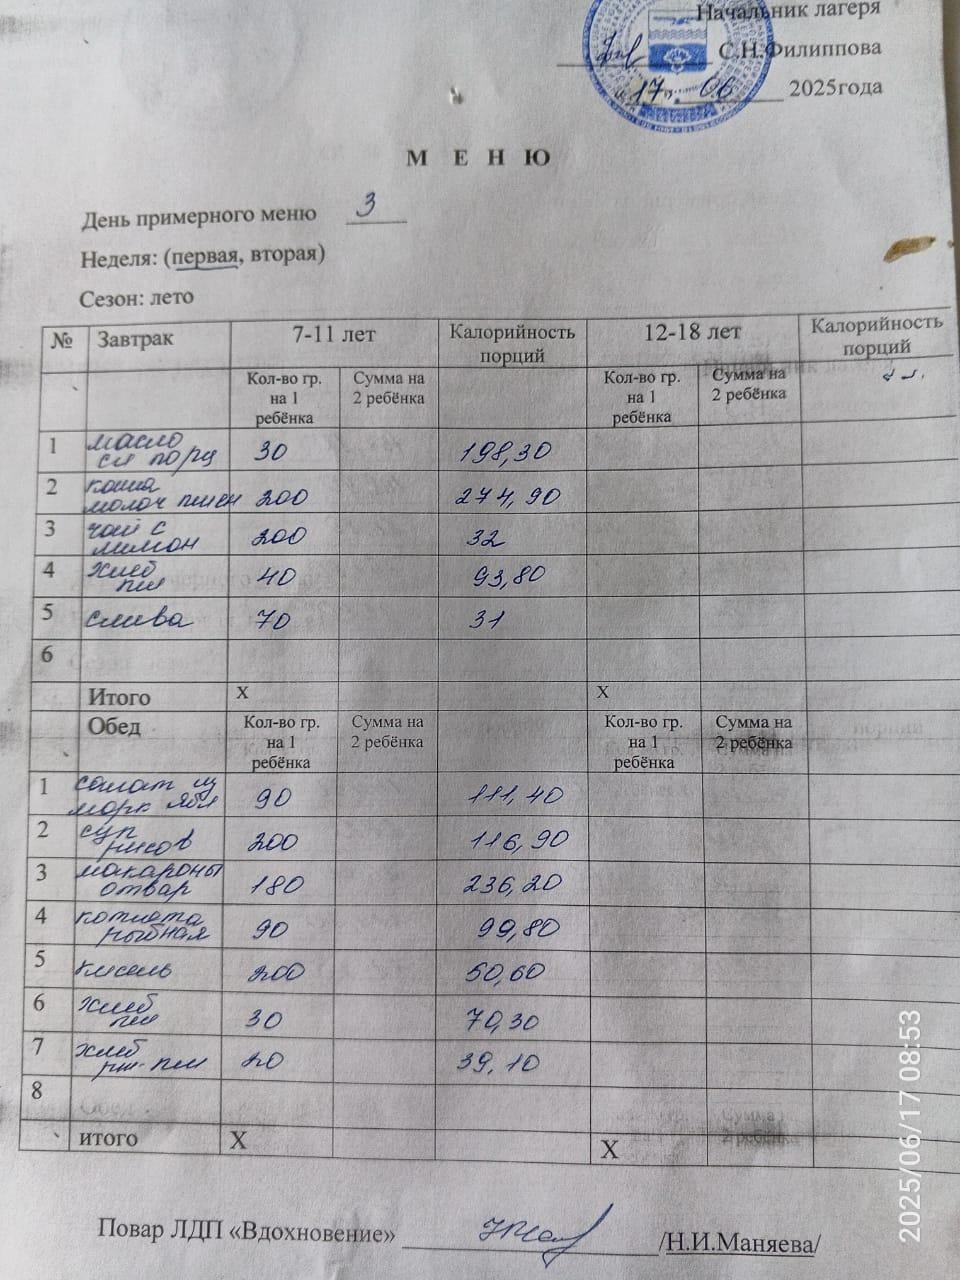 Начальник лагеря
С.Н.Филиппова
17 06 2025года
М Е Н Ю
День примерного меню 3
Неделя: (первая, вторая)
Сезон: лето
№ Завтрак 7-11 лет Калорийность порций 12-18 лет Калорийность порций
Кол-во гр. на 1 ребёнка Сумма на 2 ребёнка Кол-во гр. на 1 ребёнка Сумма на 2 ребёнка
1 масло сл порц 30 198,30
2 каша молоч пшен 200 274,90
3 чай с лимон 200 32
4 хлеб пш 40 93,80
5 слива 70 31
6
Итого Х Х
Обед Кол-во гр. на 1 ребёнка Сумма на 2 ребёнка Кол-во гр. на 1 ребёнка Сумма на 2 ребёнка
1 салат из морк ябл 90 111,40
2 суп рисов 200 116,90
3 макароны отвар 180 236,20
4 котлета рыбная 90 99,80
5 кисель 200 50,60
6 хлеб пш 30 70,30
7 хлеб рж-пш 20 39,10
8
итого Х Х
Повар ЛДП «Вдохновение» /Н.И.Маняева/
2025/06/17 08:53